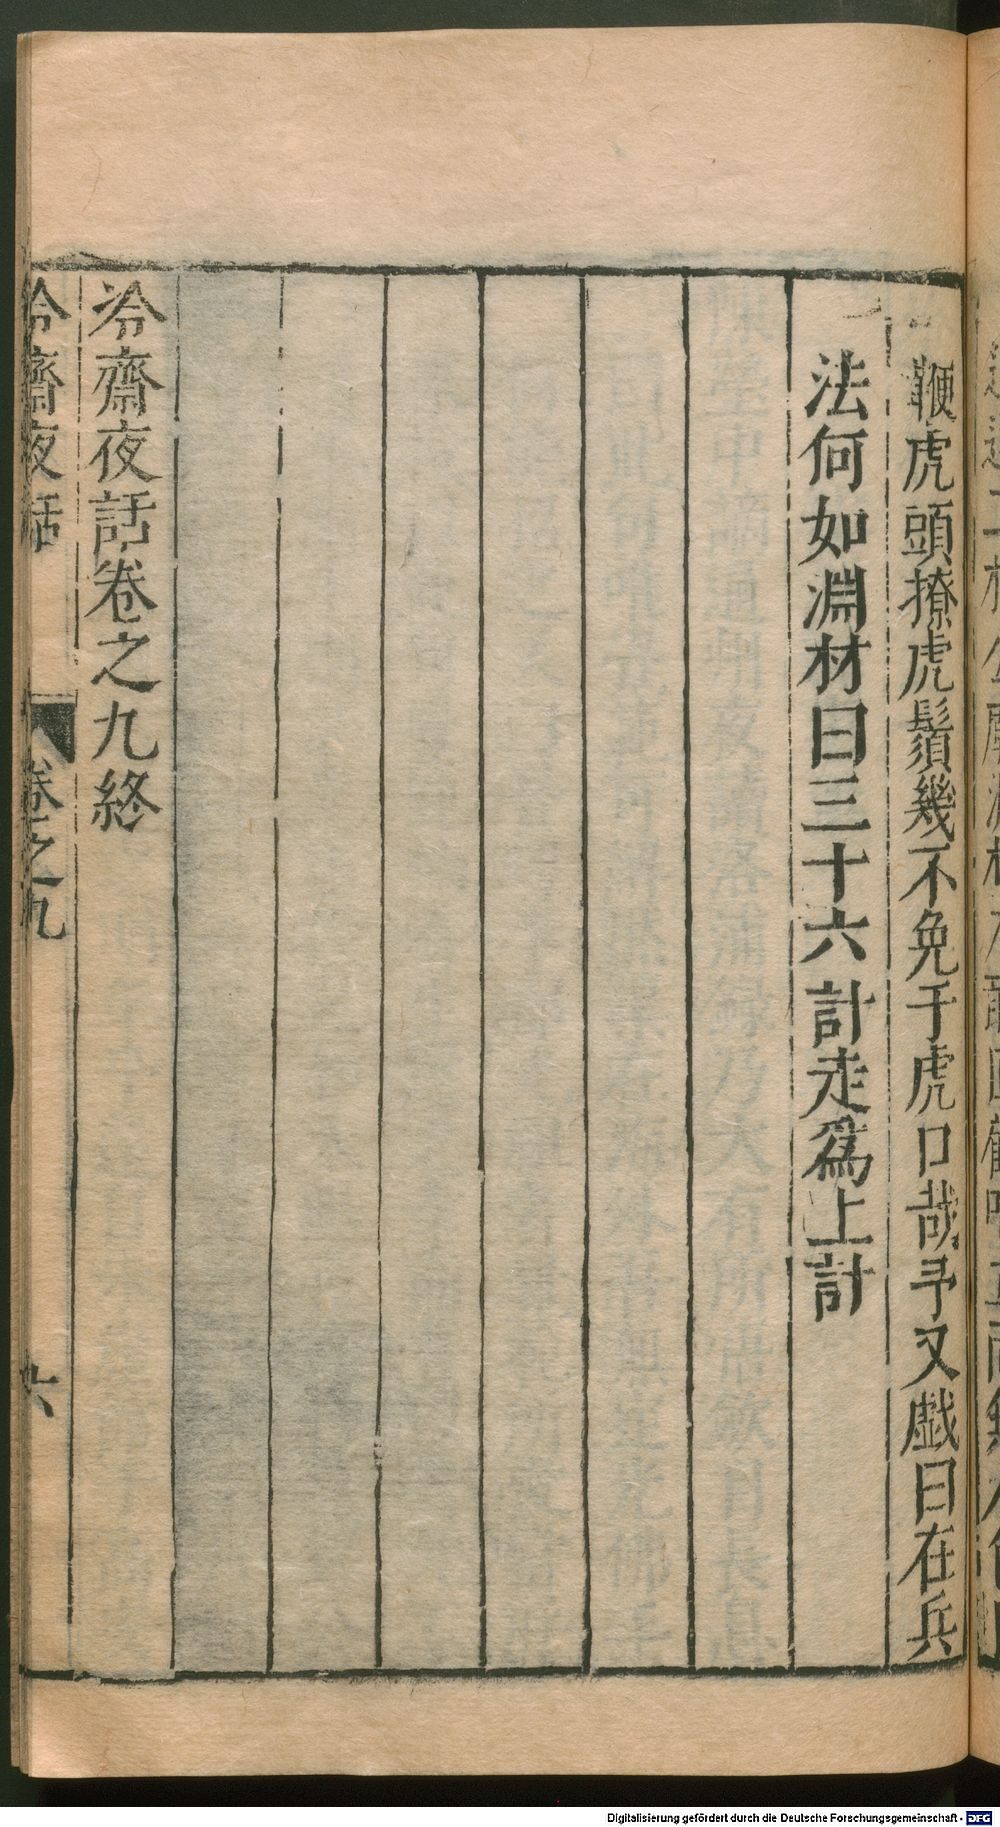 鞭虎頭撩虎鬚幾不免于虎口哉予又戲曰在兵
法何如淵材曰三十六計走爲上計
冷齋夜話卷之九終
冷齋夜話
卷之九
六
Digitalisierung gefördert durch die Deutsche Forschungsgemeinschaft - DFG